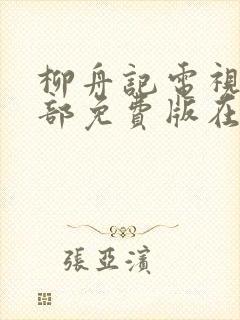 柳舟記電視
部免費版在
張亞濱